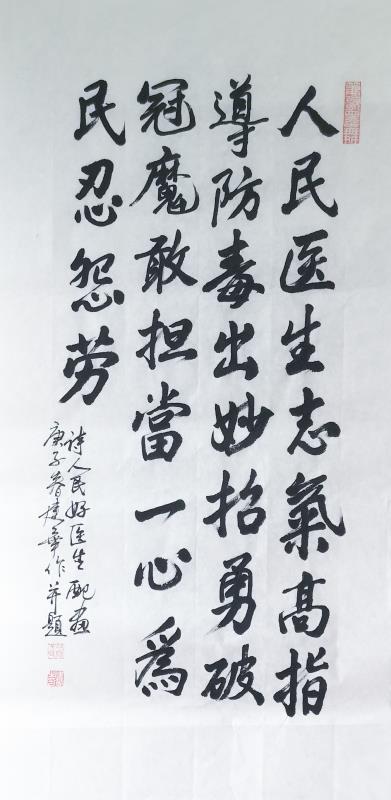 人民医生志氣髙指
導防毒出妙招勇破
冠魔敢担當一心爲
民忍怨劳
诗人民好医生配画
庚子春建華作并題